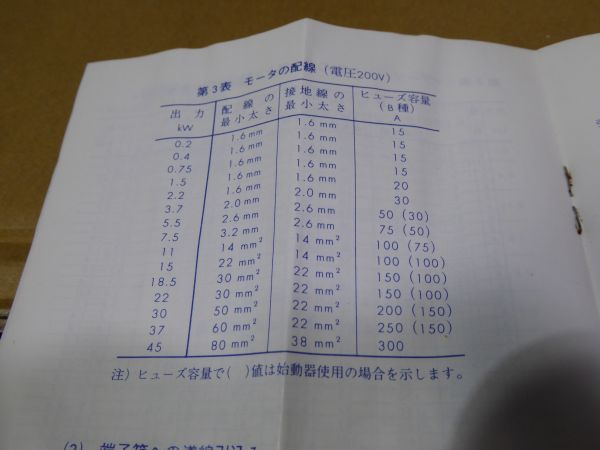 第3表 モータの配線(電圧200V)
出力 kW 配線の最小太さ 接地線の最小太さ ヒューズ容量(B種) A
0.2 1.6mm 1.6mm 15
0.4 1.6mm 1.6mm 15
0.75 1.6mm 1.6mm 15
1.5 1.6mm 1.6mm 15
2.2 1.6mm 1.6mm 20
3.7 2.0mm 2.0mm 30
5.5 2.6mm 2.6mm 50(30)
7.5 3.2mm 2.6mm 75(50)
11 14mm² 14mm² 100(75)
15 22mm² 14mm² 100(100)
18.5 30mm² 22mm² 150(100)
22 30mm² 22mm² 150(100)
30 50mm² 22mm² 200(150)
37 60mm² 22mm² 250(150)
45 80mm² 38mm² 300
注)ヒューズ容量で( )値は始動器使用の場合を示します。